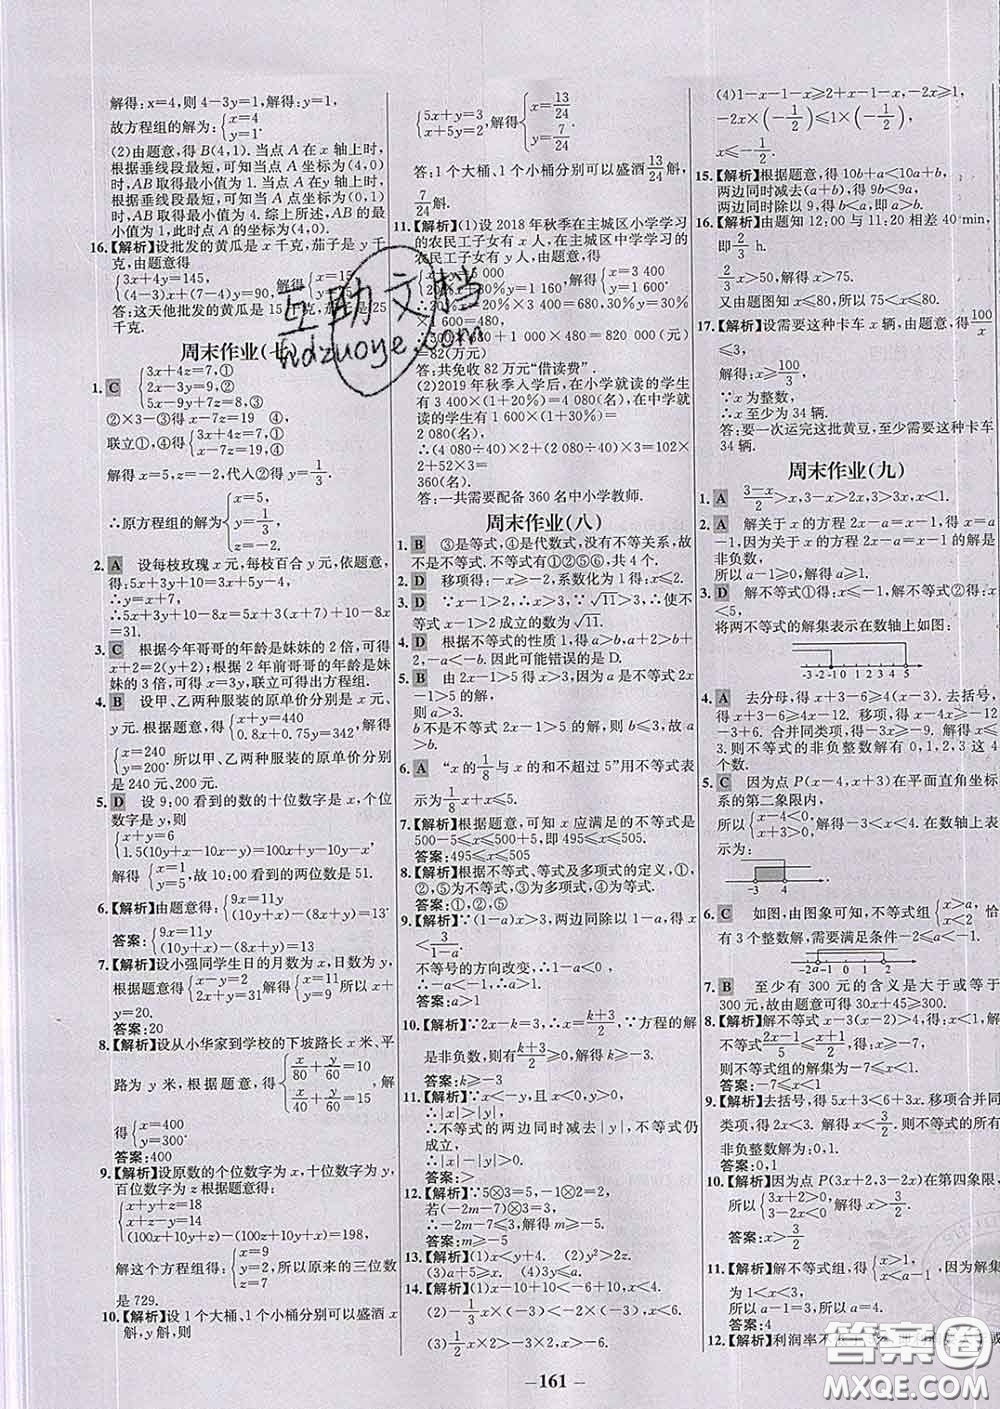 解得:x=4,则 4-3y=1,解得:y=1.
故方程组的解为:{x=4 y=1.
(2)由题意,得 B(4,1). 当点 A 在 x 轴上时,
根据垂线段最短,可知当点 A 坐标为(4,0)
时,AB 取得最小值为 1. 当点 A 在 y 轴上时,
根据垂线段最短,可知当点 A 坐标为(0,1)
时,AB 取得最小值为 4. 综上所述,AB 的最
小值为 1,此时点 A 的坐标为(4,0).
16.【解析】设批发的黄瓜是 x 千克,茄子是 y 千
克,由题意得
{3x+4y=145, (4-3)x+(7-4)y=90,
解得{x=15,
答:这天他批发的黄瓜是 15 千克,茄子是 25
千克.
周末作业(七)
1. C {3x+4z=7,① 2x-3y=9,② 5x-9y+7z=8,③
②×3-③得 x-7z=19 ④
联立①,④得{3x+4z=7 x-7z=19
解得 x=5,z=-2,代人②得 y=1/3.
∴原方程组的解为{x=5, y=1/3, z=-2.
2. A 设每枝玫瑰 x 元,每枝百合 y 元,依题意,
得:5x+3y+10=3x+5y-4,
∴y=x+7,
∴5x+3y+10-8x=5x+3(x+7)+10-8x=
31.
3. C 根据今年哥哥的年龄是妹妹的 2 倍,可得
x+2=2(y+2);根据 2 年前哥哥的年龄是妹
妹的 3 倍,可得 x=3y,联立可得出方程组.
4. B 设甲、乙两种服装的原单价分别是 x 元、
y元. 根据题意,得{x+y=440 0.8x+0.75y=342,解得
{x=240 y=200.所以甲、乙两种服装的原单价分别
是 240 元、200 元.
5. D 设 9:00 看到的数的十位数字是 x,个位
数字是 y,则
{x+y=6 1.5(10y+x-10x-y)=100x+y-10y-x
解得{x=1 y=5,故 10:00 看到的两位数是 51.
6.【解析】由题意得:{9x=11y (10y+x)-(8x+y)=13.
答案:{9x=11y (10y+x)-(8x+y)=13
7.【解析】设小强同学生日的月数为 x,日数为 y,
根据题意得{x-y=2 2x+y=31 解得 所以 x+
y=20.
答案:20
8.【解析】设从小华家到学校的下坡路长 x 米、平
路为 y 米,根据题意,得{x/80+y/60=10 x/40+y/60=15,解
得{x=400 y=300.
答案:400
9.【解析】设原数的个位数字为 x,十位数字为 y,
百位数字为 z根据题意得:
{x+y+z=18 x+y-z=14 (100x+10y+z)-(100z+10y+x)=198,
解这个方程组得:{x=9 y=2 z=7,所以原来的三位数
是 729.
10.【解析】设 1 个大桶、1 个小桶分别可以盛酒 x
斛,y 斛,则
{5x+y=3 x+5y=2,解得{x=13/24 y=7/24
答:1 个大桶、1 个小桶分别可以盛酒13/24斛、
7/24斛.
11.【解析】(1)设 2018 年秋季在主城区小学学习
的农民工子女有 x 人,在主城区中学学习的
农民工子女有 y 人,由题意,得
解得{x=3 400 y=1 600.
×20%=680,1 600×30%=480
×1 000=820 000(元)
=82(万元)
答:共免收 82 万元“借读费”.
(2)2019 年秋季入学后,在小学就读的学生
有 3 400×(1+20%)=4 080(名),在中学
就读的学生有 1 600×(1+30%)=
2 080(名).
∴(4 080÷40)×2+(2 080÷40)×3=102×
2+52×3=360(名).
答:一共需要配备 360 名中小学教师.
周末作业(八)
1. B ③是等式,④是代数式,没有不等关系,故
不是不等式. 不等式有①②⑤⑥,共 4 个.
2. D 移项得:-x≥-2,系数化为 1 得:x≤2.
3. D ∵x-1>2,∴x>3,∵√11>3,∴使不等
式 x-1>2 成立的数为√11.
4. D 根据不等式的性质 1,得:a>b,a+2>b+
2,-a<-b. 因此可能错误的是 D.
5. B 由 2x-1>5 得 x>3;因为 a 是不等式
2x-1>5 的解,
则 a>3.
b 不是不等式 2x-1>5 的解,则 b≤3,故 a
>b.
6. A “x 的1/8与 x 的和不超过 5”用不等式表
示为1/8x+x≤5.
7.【解析】根据题意,可知 x 应满足的不等式是
500-5≤x≤500+5,即 495≤x≤505.
答案:495≤x≤505
8.【解析】根据不等式、等式及多项式的定义,①,
②,⑤为不等式,③为多项式,④为等式.
答案:①,②,⑤
9.【解析】∵(1-a)x>3,两边同除以 1-a,得 x
<3/(1-a),
不等号的方向改变,∴1-a<0,
∴-a<-1,∴a>1.
答案:a>1
10.【解析】∵2x-k=3,∴x=(k+3)/2,∵方程的解
是非负数,则有(k+3)/2≥0,解得 k≥-3.
答案:k≥-3
11.【解析】∵x<-y,且 x>0.
∴|x|>|y|,
∴不等式的两边同时减去|y|,不等式仍
成立,
∴|x|-|y|>0.
答案:>
12.【解析】∵5⊗3=5,-1⊗2=2,
若(-2m-7)⊗3=3,
∴-2m-7≤3,解得 m≥-5.
答案:m≥-5
13.【解析】(1)x<y+4. (2)y²>2z.
(3)a+5≥-3. (4)
14.【解析】(1)x-10+10<-6+10,x<4.
(3)1/2x×2>-3×2,x>-6.
(4)1-x-1-x≥2+x-1-x,-2x≥1,
-2x×(-1/2)≤1×(-1/2),
x≤-1/2.
15.【解析】根据题意,得 10b+a<10a+b,
两边同时减去(a+b),得 9b<9a,
两边同时除以 9,得 b<a,即 a>b.
16.【解析】由题知 12:00 与 11:20 相差 40 min,
即2/3 h.
2/3x>50,解得 x>75,
又由题图知 x≤80,所以 75<x≤80.
17.【解析】设需要这种卡车 x 辆,由题意,得100/x
≤3,
解得:x≥100/3,
∵x 为整数,
∴x 至少为 34 辆.
答:要一次运完这批黄豆,至少需要这种卡车
34 辆.
周末作业(九)
1. A (3-x)/2>x,3-x>2x,3>3x,x<1.
2. A 解关于 x 的方程 2x-a=x-1,得 x=a
-1,因为关于 x 的方程 2x-a=x-1 的解是
非负数,
所以 a-1≥0,解得 a≥1.
3. D 解不等式①得:x≤-1,解不等式②得:x
<5,
将两不等式的解集表示在数轴上如图:
-3 -2 -1 0 1 2 3 4 5
4. A 去分母,得 x+3-6≥4(x-3). 去括号,
得 x+3-6≥4x-12. 移项,得 x-4x≥-12
-3+6. 合并同类项,得-3x≥-9. 解得 x≤
3. 则不等式的非负整数解有 0,1,2,3 这 4
个数.
5. C 因为点 P(x-4,x+3)在平面直角坐标
系的第二象限内,
所以{x-4<0 x+3>0,解得-3<x<4. 在数轴上表
示为:
-3 4
6. C 如图,由图象可知,不等式组{x>a x<2 恰
有 3 个整数解,需要满足条件-2≤a<-1.
-2 a -1 0 1 2
7. B 至少有 300 元的含义是大于或等于
300 元,故由题意可得 30x+45≥300.
8.【解析】解不等式 x-3(x-2)>4,得:x<1,解
不等式(2x-1)/5≤(x+1)/2,得:x≥-7,
则不等式组的解集为-7≤x<1.
答案:-7≤x<1
9.【解析】去括号,得 5x+3<6+3x. 移项合并同
类项,得 2x<3. 解得 x<3/2. 则原不等式的
非负整数解为:0,1.
答案:0,1
10.【解析】因为点 P(3x+2,3-2x)在第四象限,
所以{3x+2>0 3-2x<0,解得 x>3/2.
答案:x>3/2
11.【解析】解不等式组,得{x>1, x<a-1,因为解集
为 1<x<3,
所以 a-1=3.
所以 a=4.
答案:4
12.【解析】利润率不
互助文档
hdzuoye.com
答案圈
MXQE.COM
— 161 —